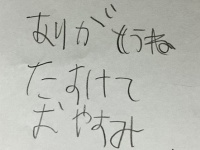 ありがとうね
たすけて
おやすみ